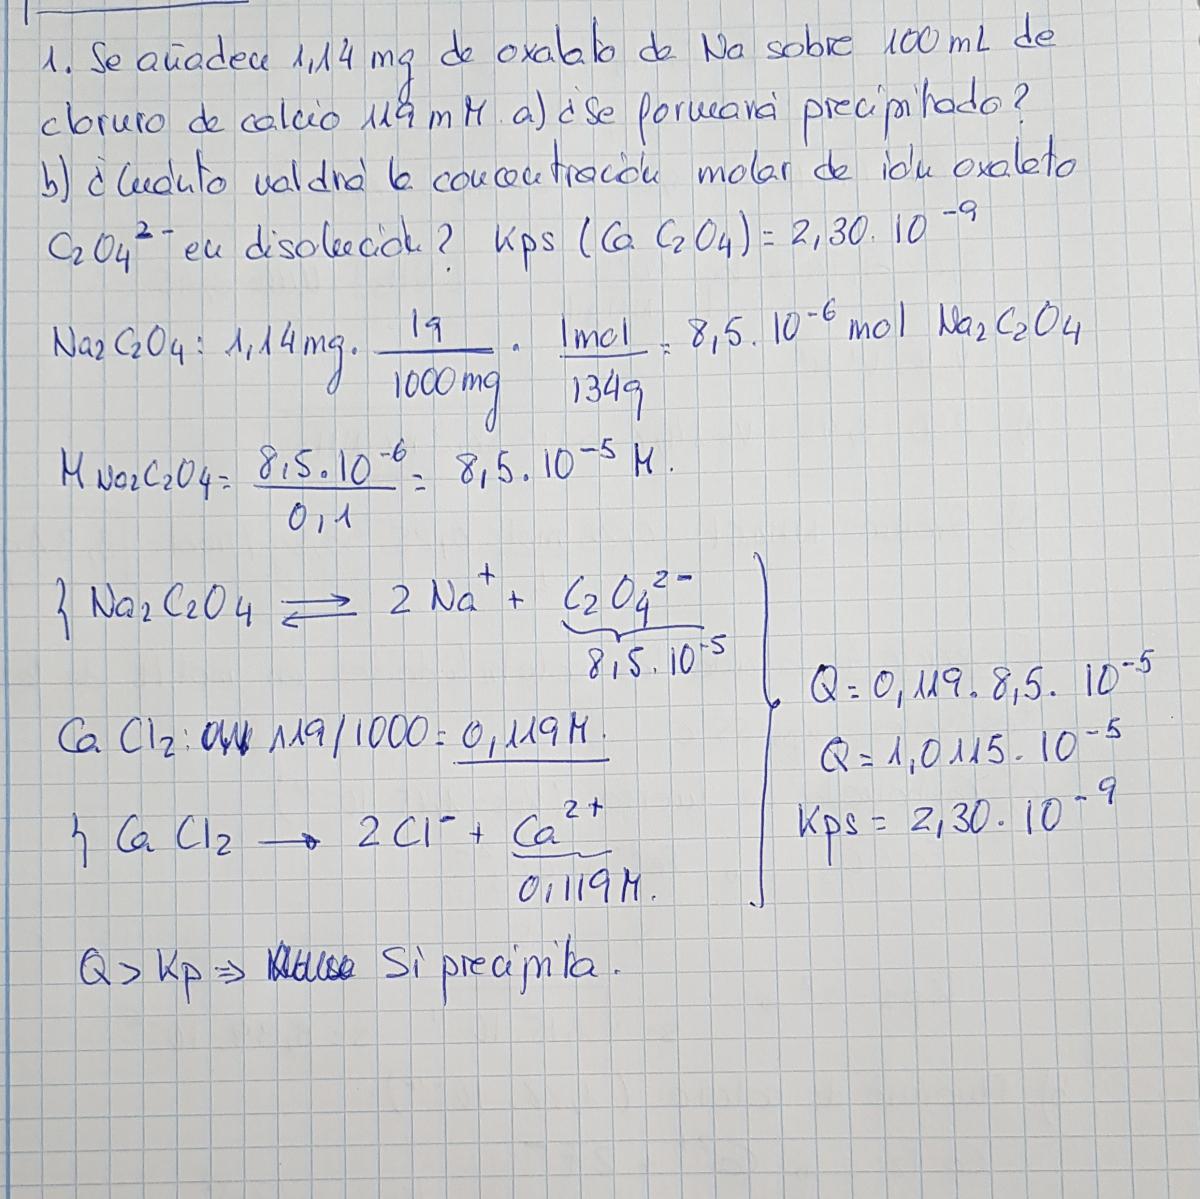 1. Se añaden 1,14 mg de oxalato de Na sobre 100 mL de
cloruro de calcio 119 mM. a) ¿Se formará precipitado?
b) ¿Cuánto valdrá la concentración molar de ión oxalato
C2O4^2- en disolución? Kps (Ca C2O4) = 2,30 · 10^-9
Na2C2O4: 1,14 mg · 1g/1000 mg · 1mol/134g = 8,5 · 10^-6 mol Na2C2O4
M Na2C2O4 = 8,5 · 10^-6 / 0,1 = 8,5 · 10^-5 M.
} Na2C2O4 ⇌ 2 Na^+ + C2O4^2-
8,5 · 10^-5
Ca Cl2: 119/1000 = 0,119 M.
} Ca Cl2 → 2 Cl^- + Ca^2+
0,119 M.
Q = 0,119 · 8,5 · 10^-5
Q = 1,0115 · 10^-5
Kps = 2,30 · 10^-9
Q > Kp ⇒ Si precipita.